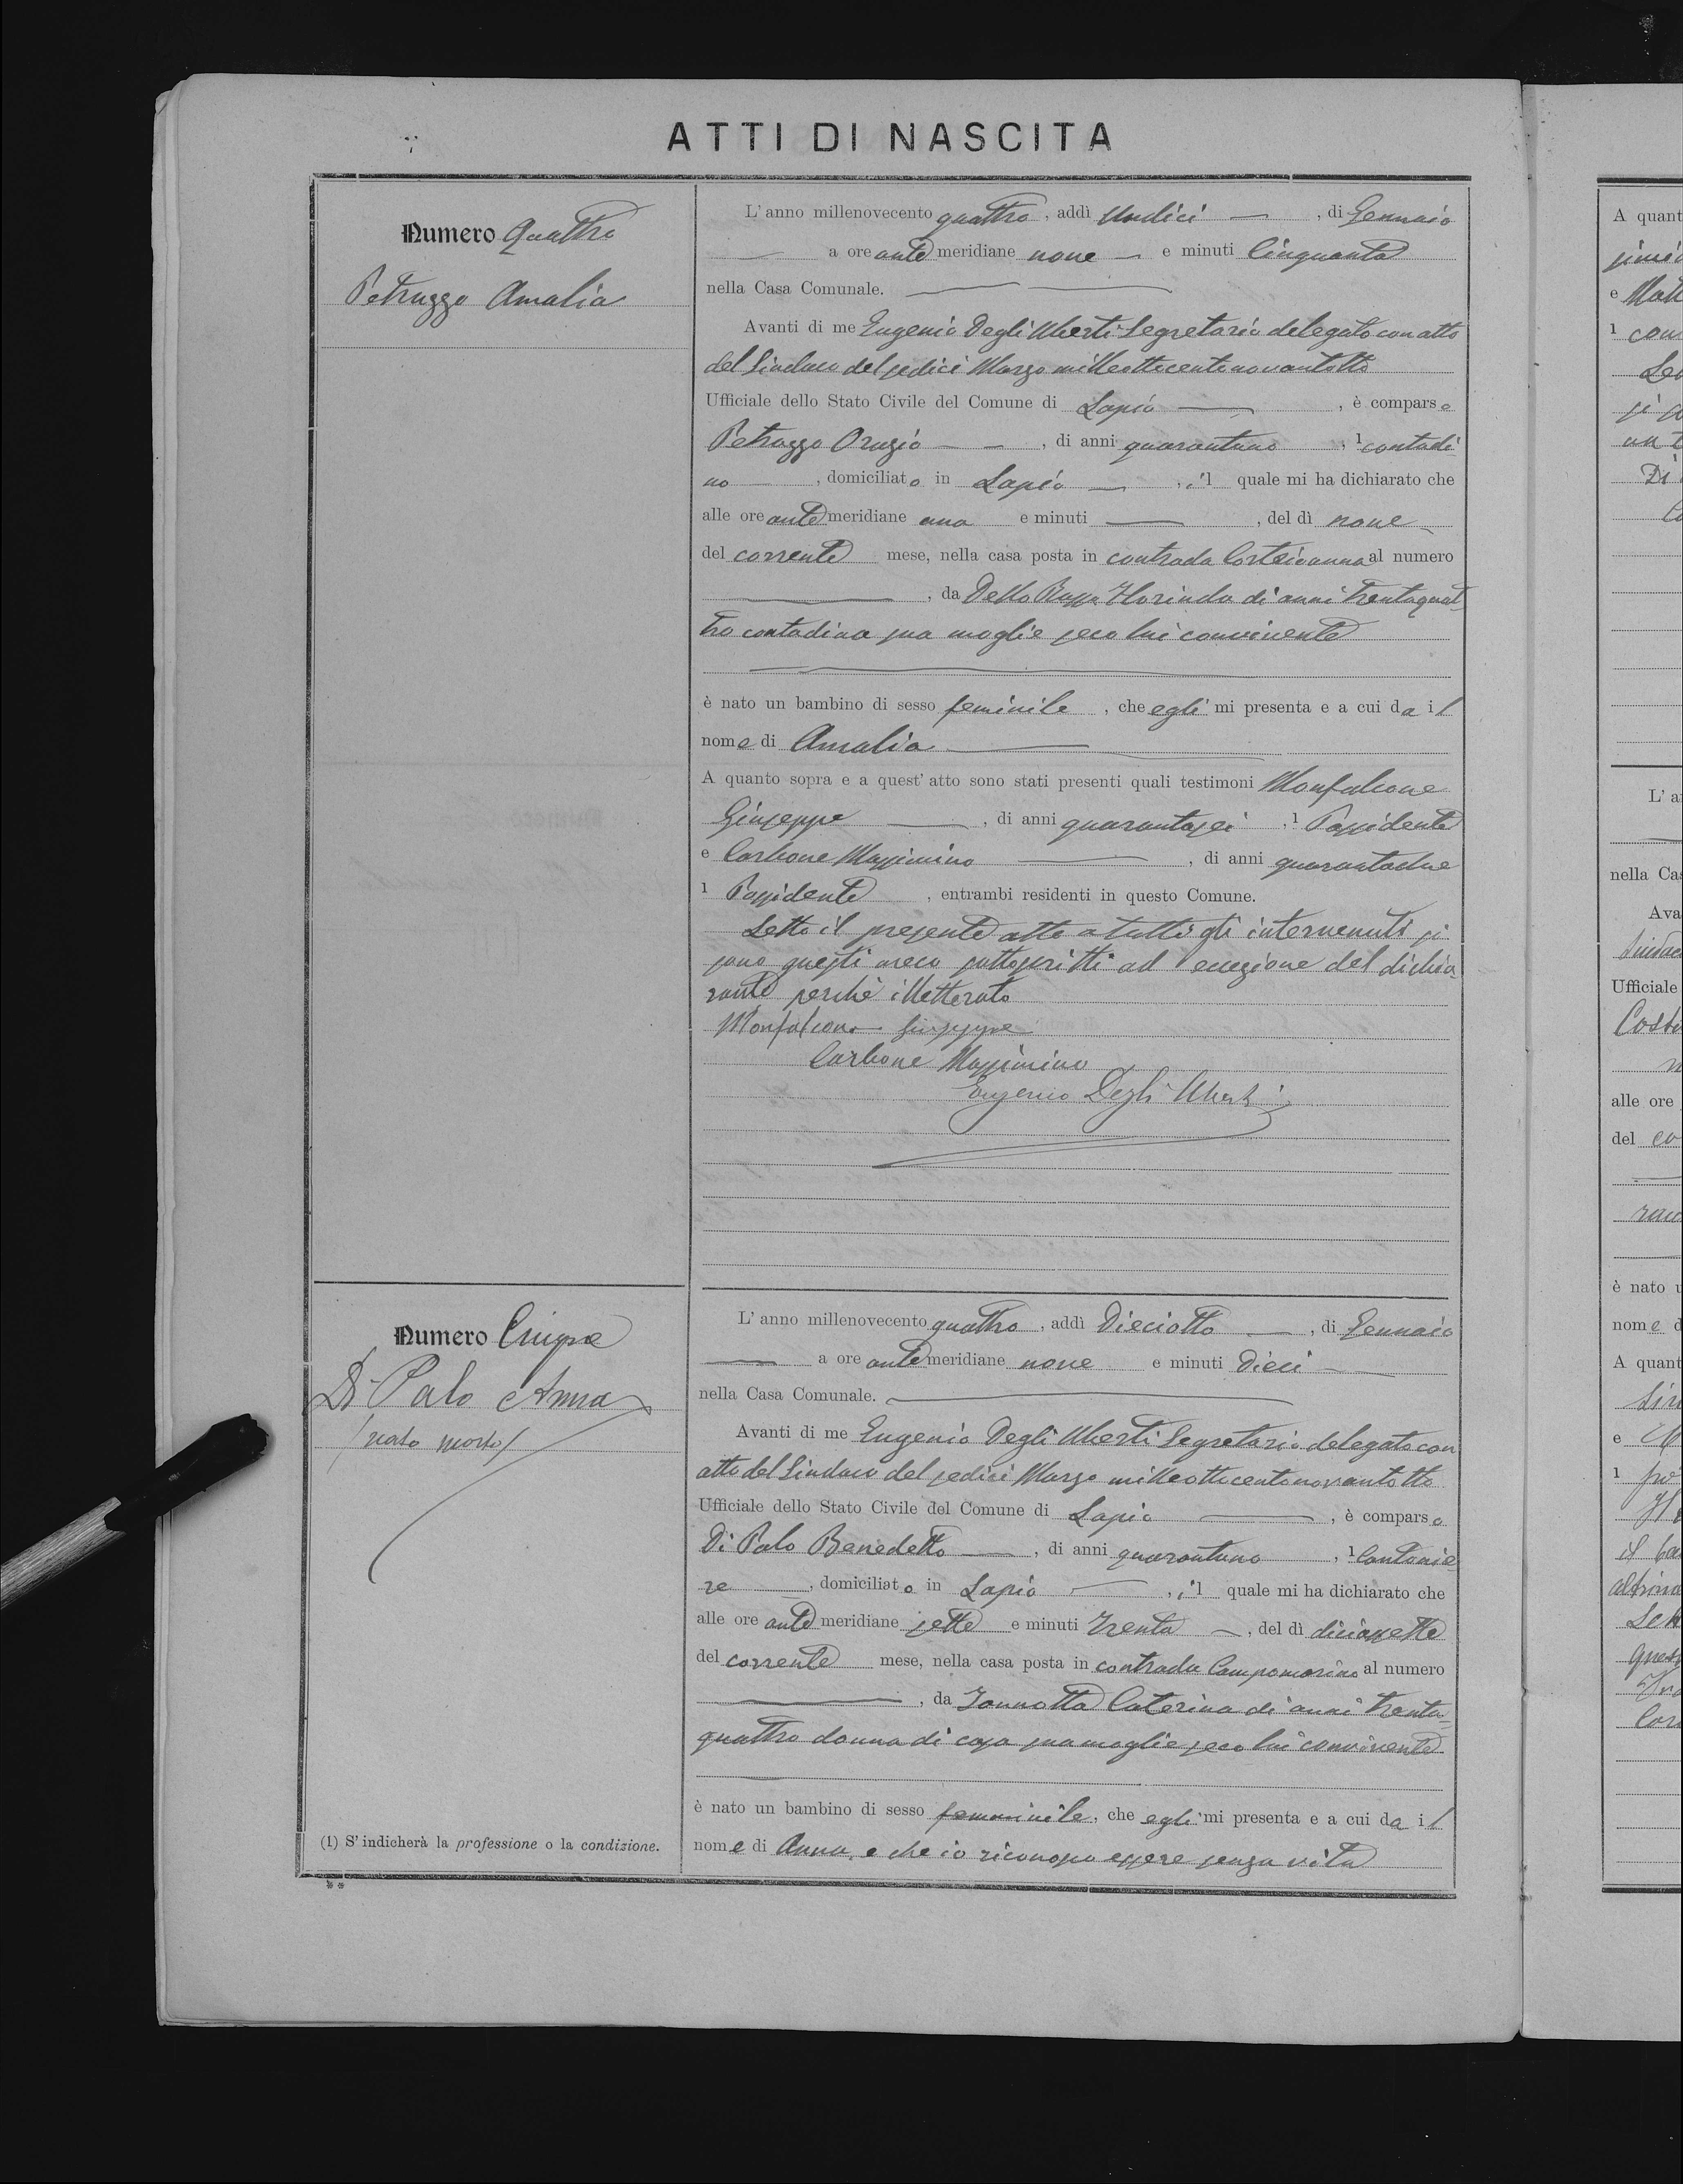 ATTI DI NASCITA
Numero Quattro
Petruzzo Amalia
L'anno millenovecento quattro, addì undici, di Gennaio
a ore antemeridiane nove e minuti Cinquanta
nella Casa Comunale.
Avanti di me Eugenio Degli Uberti Segretario delegato con atto
del Sindaco del sedici Marzo milleottocentonovantotto
Ufficiale dello Stato Civile del Comune di Lapio, è comparso
Petruzzo Orazio, di anni quarantuno, 1 contadi
no, domiciliato in Lapio, il quale mi ha dichiarato che
alle ore antemeridiane una e minuti, del dì nove
del corrente mese, nella casa posta in contrada al numero
, da Florinda di anni trentaquat
tro contadina sua moglie seco lui convivente
è nato un bambino di sesso feminile, che egli mi presenta e a cui da il
nome di Amalia
A quanto sopra e a quest'atto sono stati presenti quali testimoni Monfalcone
Giuseppe, di anni quarantasei, 1 Possidente
e Carbone Massimino, di anni quarantadue
1 Possidente, entrambi residenti in questo Comune.
Letto il presente atto a tutti gli intervenuti si
sono questi meco sottoscritti ad eccezione del dichia
rante perchè illetterato
Monfalcone Giuseppe
Carbone Massimino
Eugenio Degli Uberti
Numero Cinque
Di Palo Anna
(nato morto)
L'anno millenovecento quattro, addì Dieciotto, di Gennaio
a ore antemeridiane nove e minuti dieci
nella Casa Comunale.
Avanti di me Eugenio Degli Uberti Segretario delegato con
atto del Sindaco del sedici Marzo milleottocentonovantotto
Ufficiale dello Stato Civile del Comune di Lapio, è comparso
Di Palo Benedetto, di anni quarantuno, 1 Cantonie
re, domiciliato in Lapio, il quale mi ha dichiarato che
alle ore antemeridiane sette e minuti trenta, del dì diciassette
del corrente mese, nella casa posta in contrada Campomarino al numero
, da Iannotta Caterina di anni trenta=
quattro donna di casa sua moglie seco lui convivente
è nato un bambino di sesso femminile, che egli mi presenta e a cui da il
nome di Anna, e che io riconosco essere senza vita
(1) S'indicherà la professione o la condizione.
**
A quant
e
1 con
L'a
nella Cas
Ava
Sindac
Ufficiale
alle ore
del co
è nato u
nome d
A quant
e
1